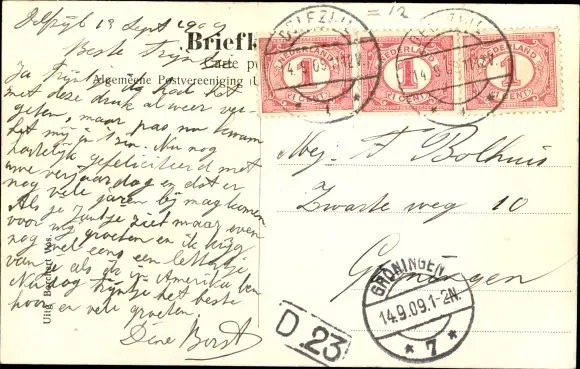 Delfzijl 13 Sept 1909
= 12
Beste Trijntje
Briefk
Carte po
Algemeene Postvereeniging (U
Ja Trijntje ik had het
met deze druk al weer ver-
geten, maar pas nu kwam
het mij in 's zin. Nu nog
hartelijk gefeliciteerd met
uwe verjaardag en dat er
nog vele jaren bij mag komen
Als je Jantje ziet maar even
voor mij groeten en ik krijg
nog wel eens een lettertje
van je als ik in Amerika ben
Nu dag Trijntje het beste
hoor en vele groeten.
Dine Borst
Uitg. Borchert Wes.
DELFZIJL
14.9.09.11-12V.
1
NEDERLAND
1
1 CENT
NEDERLAND
1
1 CENT
NEDERLAND
1
1 CENT
DELFZIJL
14.9.09.11-12V.
1
Mej. T Bolhuis
Zwarte weg 10
Groningen
GRONINGEN
14.9.09.1-2N.
* 7 *
D 23